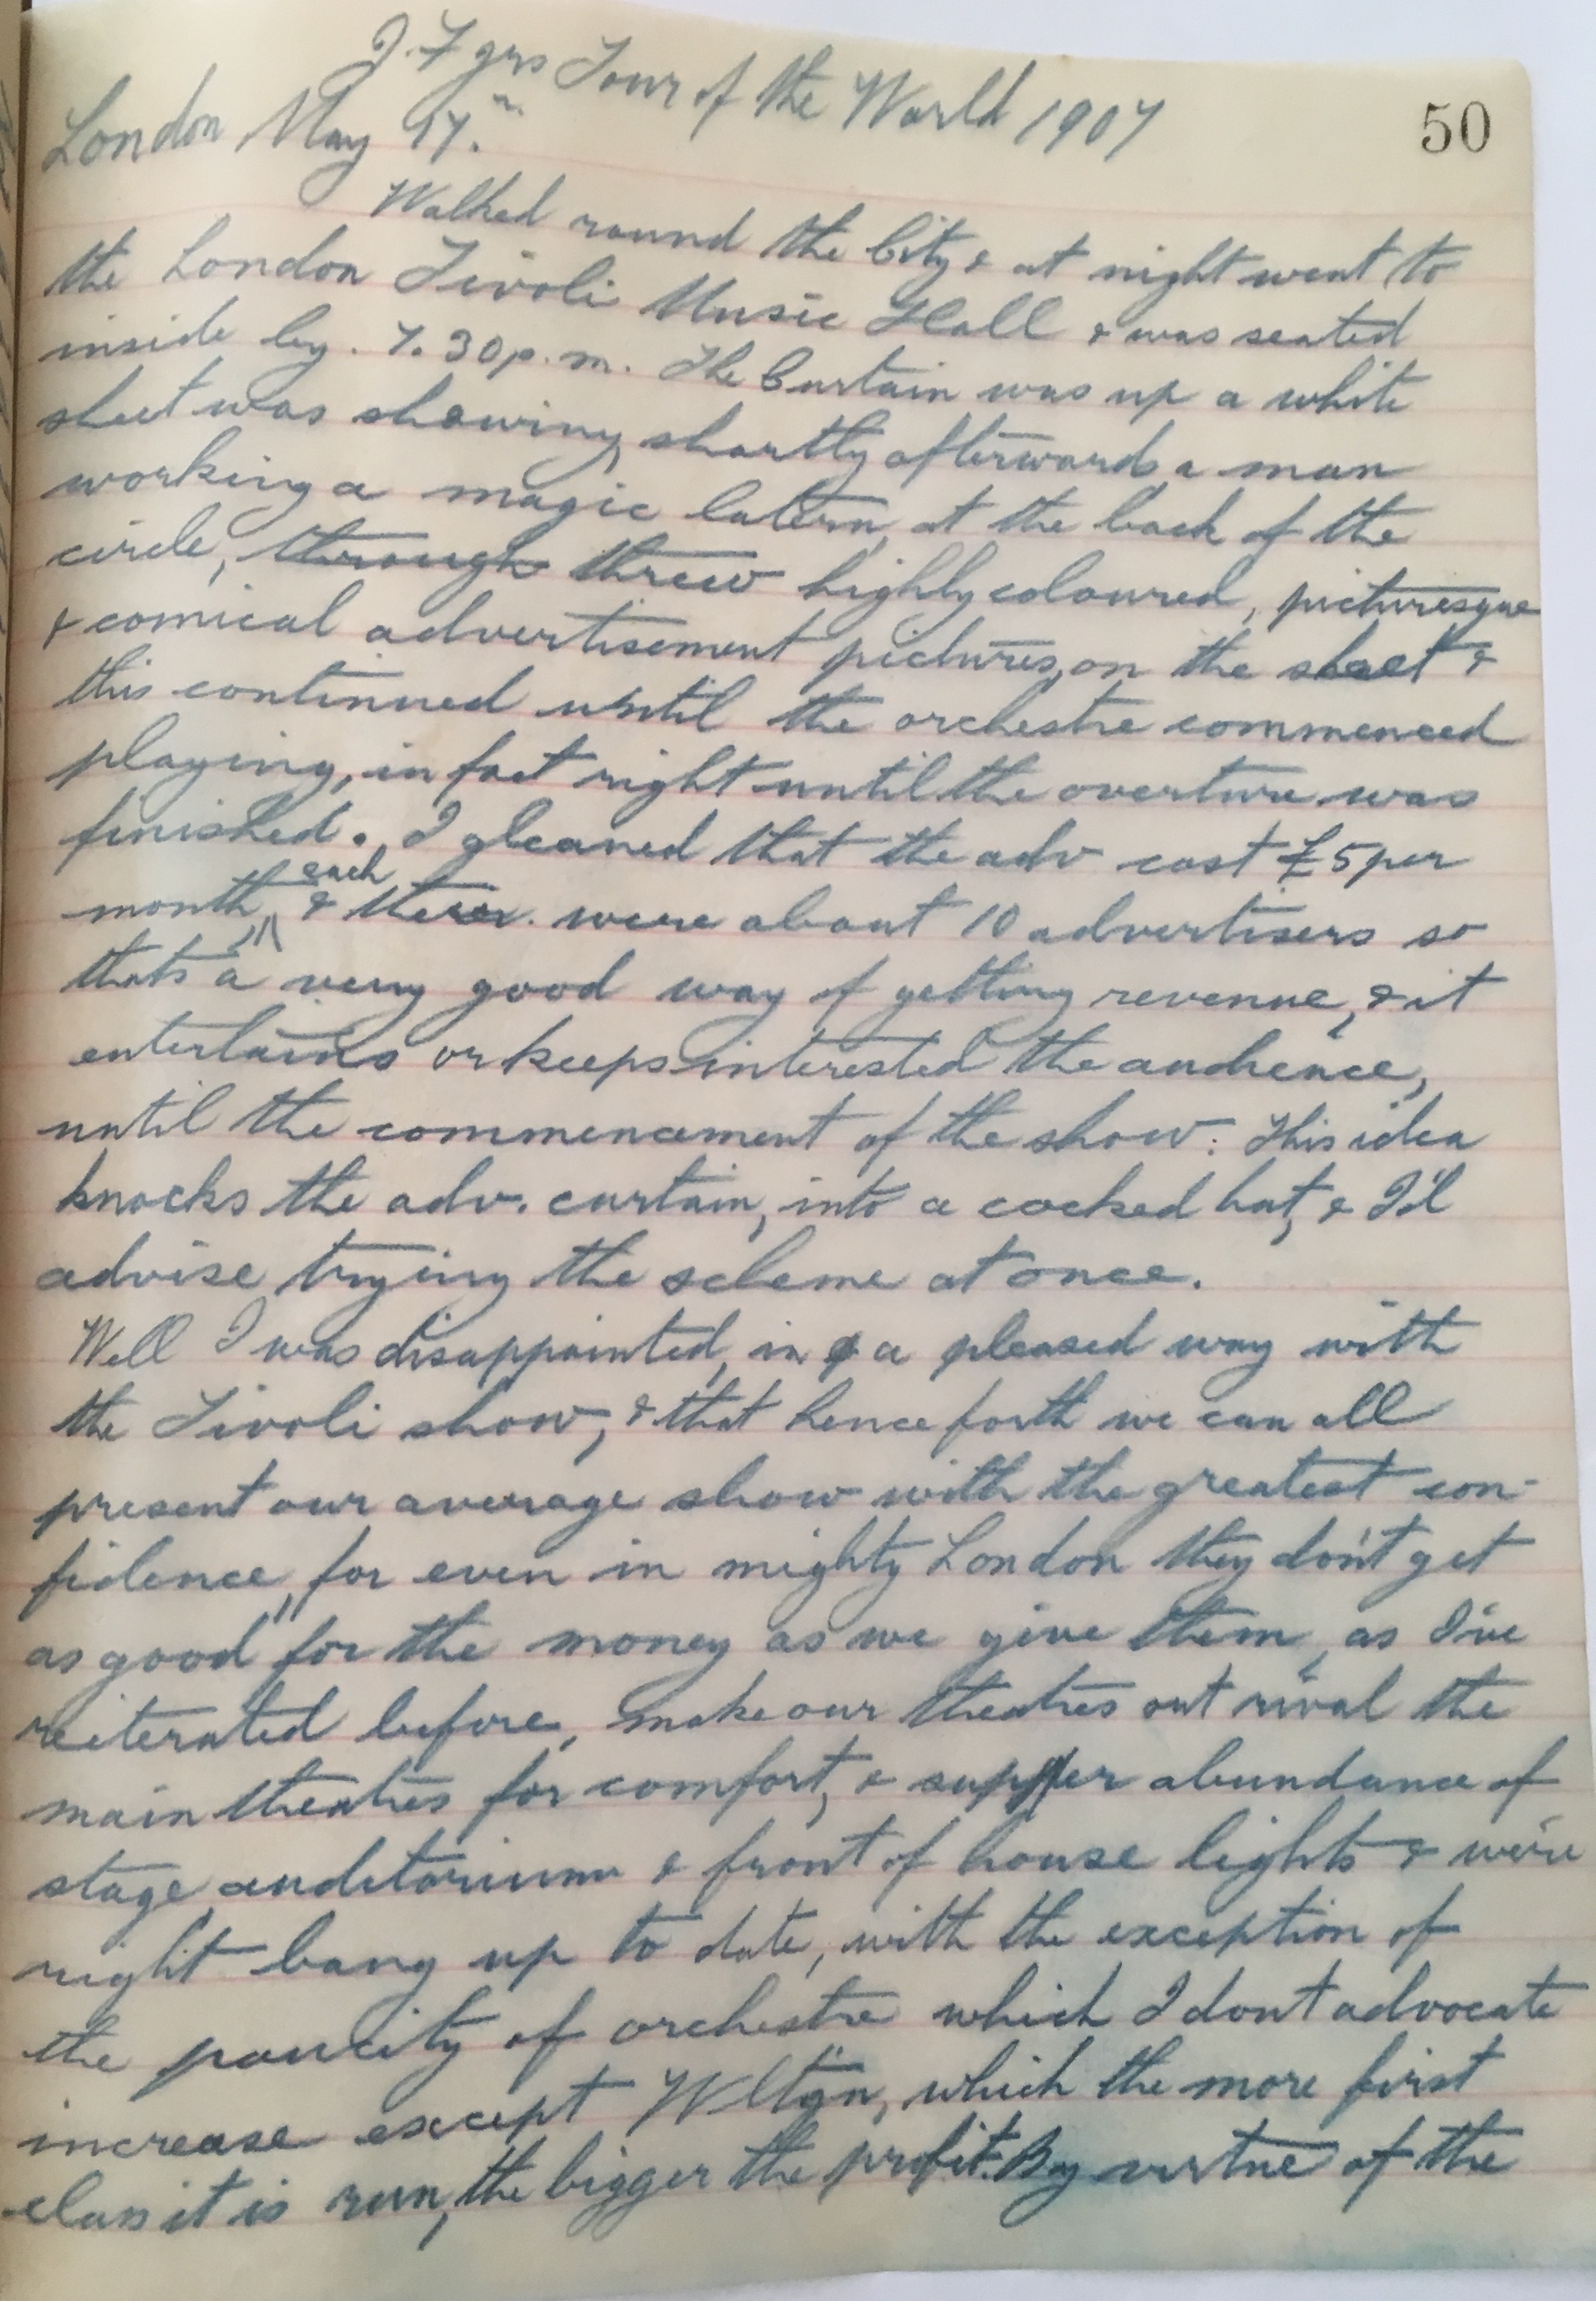 J. F grs Tour of the World 1907
50
London May 17.th
Walked round the City & at night went to
the London Tivoli Music Hall & was seated
inside by. 7.30 p.m. The Curtain was up a white
sheet was showing, shortly afterwards a man
working a magic latern, at the back of the
circle, through threw highly coloured, picturesque
& comical advertisement pictures, on the sheet &
this continued until the orchestre commenced
playing, in fact right until the overture was
finished. I gleaned that the adv cost £5 per
month, each & there were about 10 advertisers so
thats a very good way of getting revenue, & it
entertains or keeps interested the audience,
until the commencement of the show. This idea
knocks the adv. curtain, into a cocked hat, & I'd
advise trying the scheme at once.
Well I was disappointed, in a pleased way with
the Tivoli show, & that hence forth we can all
present our average show with the greatest con-
fidence, for even in mighty London they don't get
as good for the money as we give them, as I've
reiterated before, make our theatres out rival the
main theatres for comfort, & supper abundance of
stage auditorium & front of house lights & we're
right bang up to date, with the exception of
the paucity of orchestre which I dont advocate
increase except Wltgn, which the more first
class it is run, the bigger the profit. By virtue of the